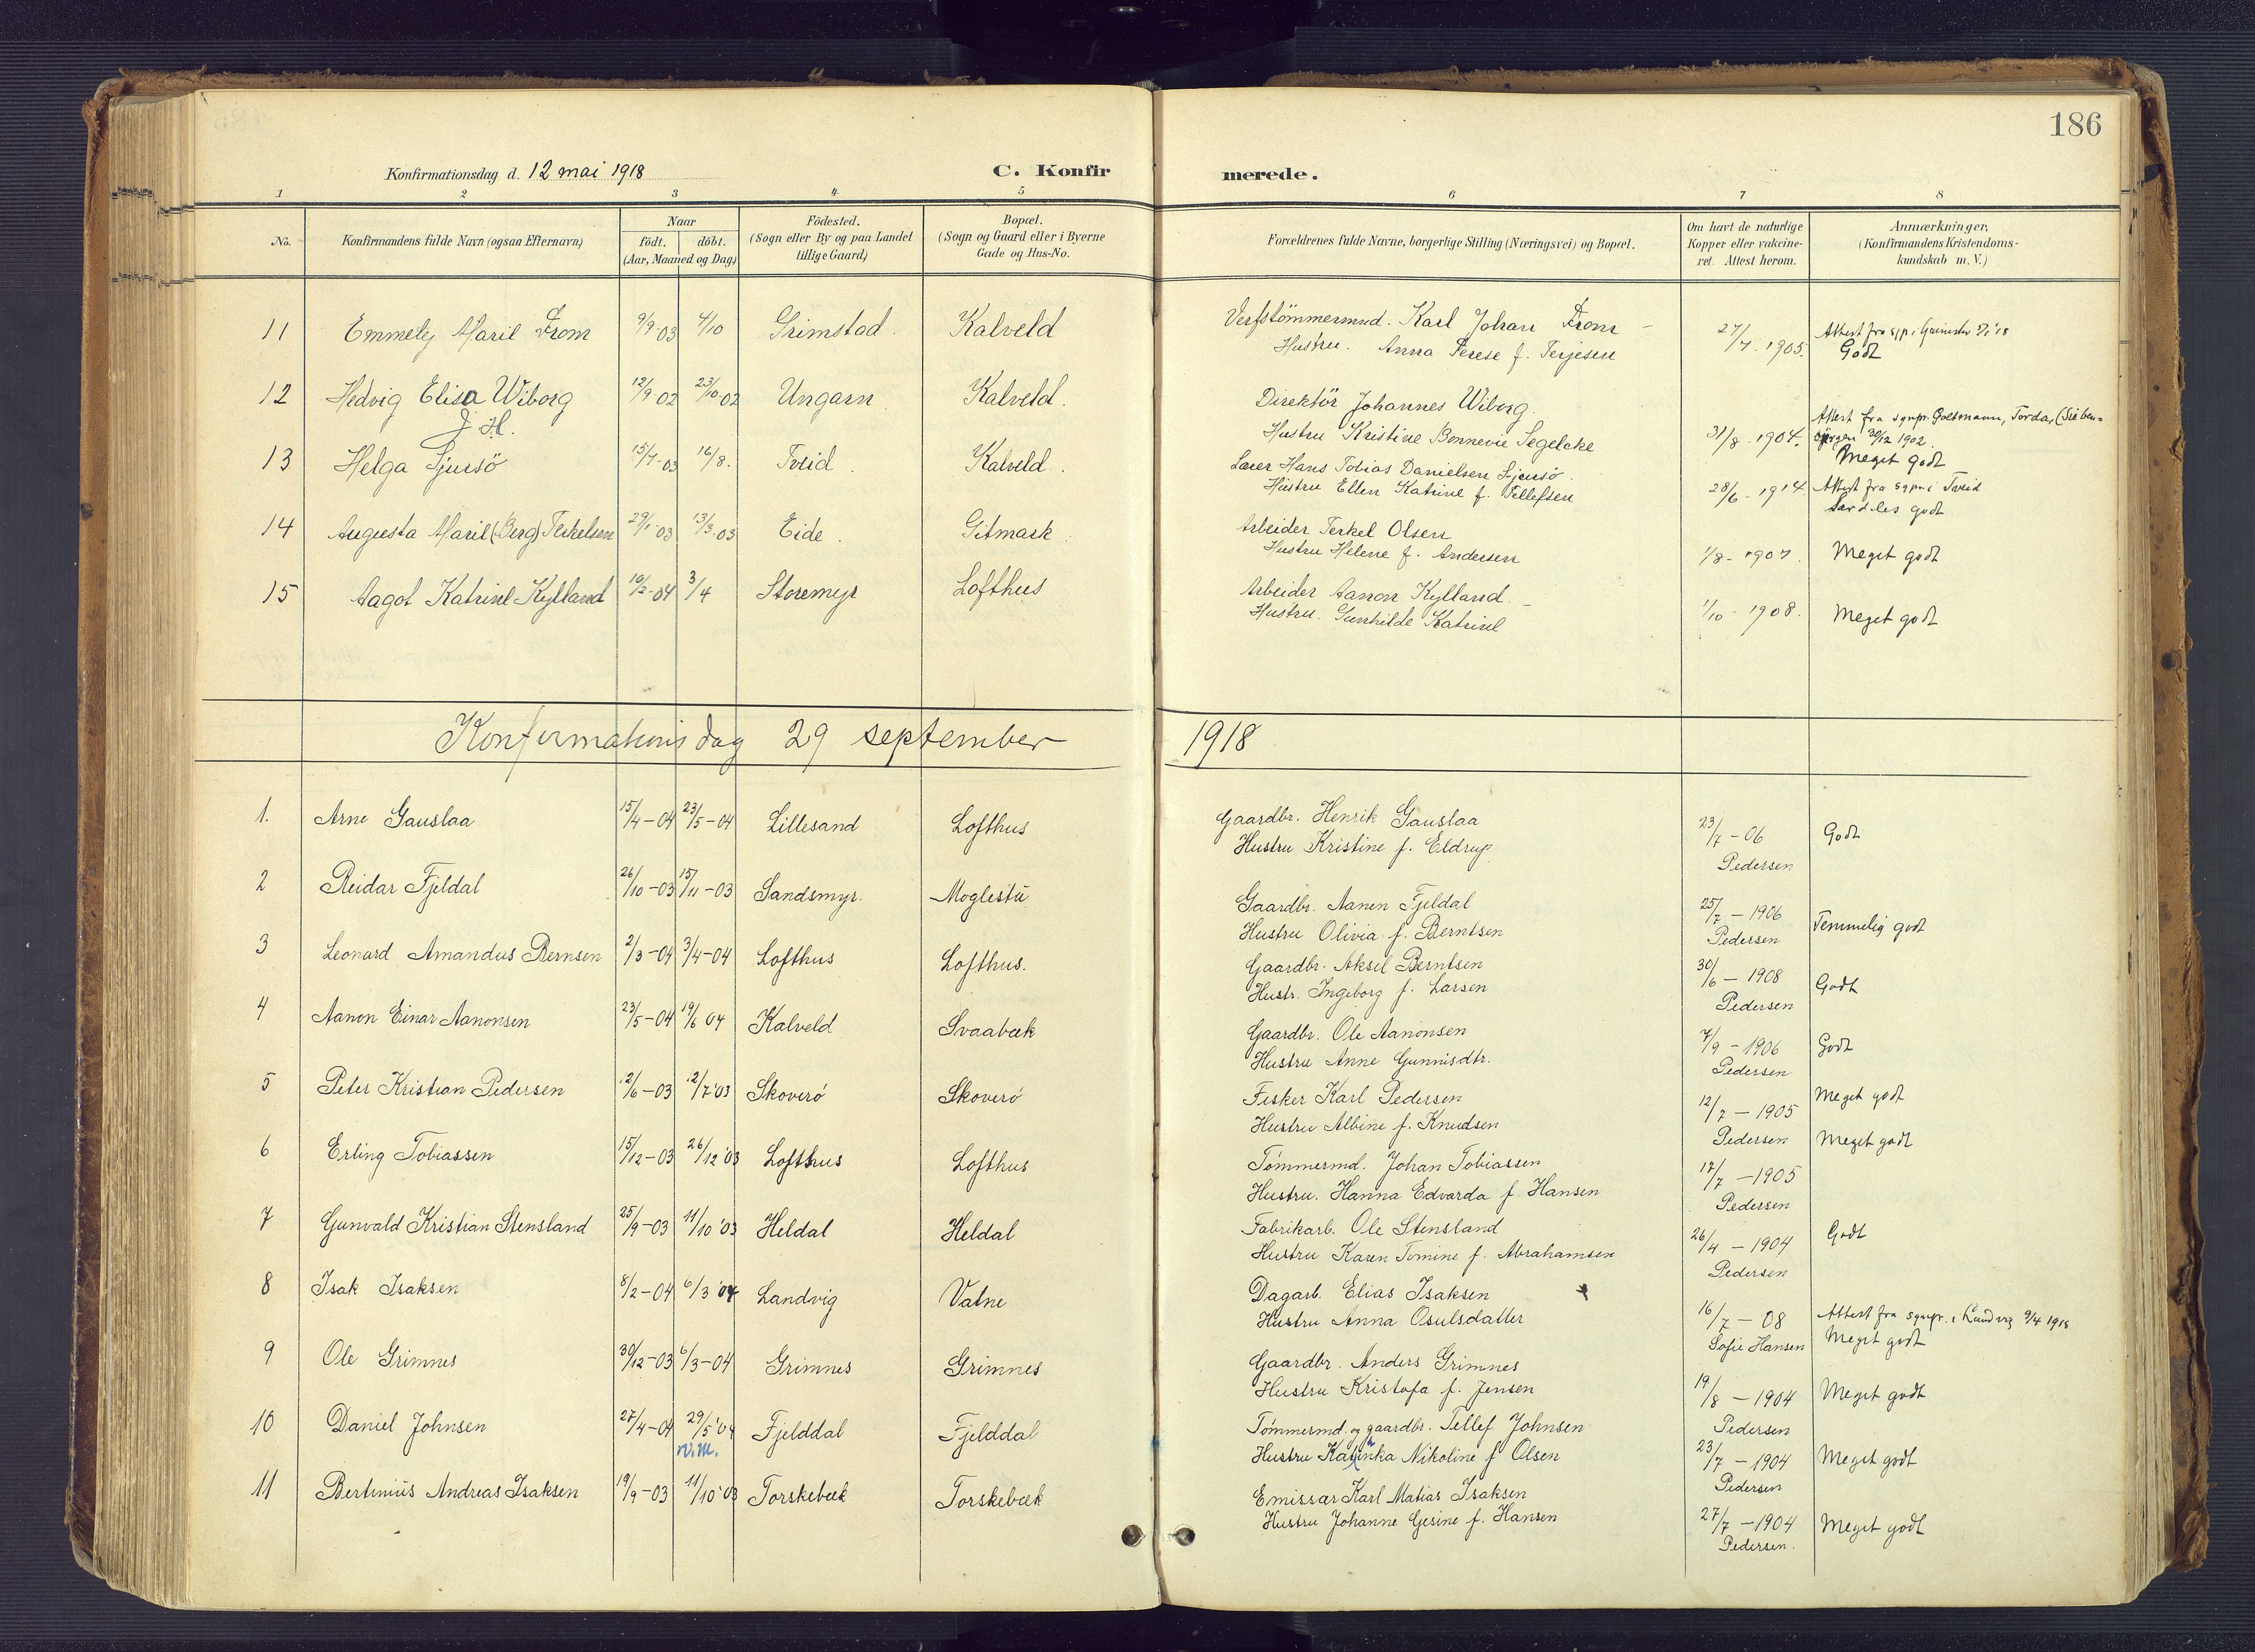 186
Konfirmationsdag d. 12 mai 1918
C. Konfirmerede.
1 2 3 4 5 6 7 8
No.
Konfirmandens fulde Navn (ogsaa Efternavn)
Naar
födt. döbt.
(Aar, Maaned og Dag)
Födested.
(Sogn eller By og paa Landet
tillige Gaard)
Bopæl.
(Sogn og Gaard eller i Byerne
Gade og Hus-No.
Forældrenes fulde Navne, borgerlige Stilling (Næringsvei) og Bopæl.
Om havt de naturlige
Kopper eller vakcine-
ret. Attest herom.
Anmærkninger,
(Konfirmandens Kristendoms-
kundskab m. V.)
11 Emmely Maril From 9/9-03 4/10 Grimstad Kalveld Verftömmermnd. Karl Johan From 27/7-1905. Attest fra
Hustru Anna Terese f. Terjesen Godt
12 Hedvig Elisa Wiborg 12/9 02 23/10-02 Ungarn Kalveld. Direktör Johannes Wiborg
J. H. Hustru Kristine Bonnevie Segelcke 31/8-1904. Attest fra sgnpr. Goltsmann, Torda, (Sieben-
bürgen 30/12 1902.
Meget godt
13 Helga Sjursö 15/7-03 16/8. Tveid. Kalveld. Lærer Hans Tobias Danielsen Sjursö.
Hustru Ellen Katrine f. Tellefsen 28/6-1914 Attest fra sgnpr. i Tveid
særdeles godt
14 Augusta Maril (Berg) Terkelsen 29/1-03 13/3.03 Eide. Gitmark Arbeider Terkel Olsen
Hustru Helene f. Andersen 1/8-1907. Meget godt
15 Aagot Katrinel Kylland 10/2-04 3/4 Storemyr Lofthus Arbeider Aanon Kylland
Hustru. Gunhilde Katrinel 1/10-1908. Meget godt
Konfirmationsdag 29 september 1918
1. Arne Gauslaa 15/4-04 23/5-04 Lillesand Lofthus Gaardbr. Henrik Gauslaa 23/7-06 Godt
Hustru Kristine f. Eldrup Pedersen
2 Reidar Fjeldal 26/10-03 15/11-03 Sandsmyr. Moglestu Gaardbr. Aanen Fjeldal 25/7-1906 Temmelig godt
Hustru Olivia f. Berntsen Pedersen
3 Leonard Amandus Bernsen 2/3-04 3/4-04 Lofthus Lofthus. Gaardbr. Aksel Berntsen 30/6-1908 Godt
Hustr. Ingeborg f. Larsen Pedersen
4 Aanon Einar Aanonsen 23/5-04 19/6 04 Kalveld Svaabæk Gaardbr. Ole Aanonsen 7/9-1906 Godt
Hustru Anne Gunnisdtr. Pedersen
5 Peter Kristian Pedersen 12/6-03 12/7'03 Skoverö Skoverö Fisker Karl Pedersen 12/7-1905 Meget godt
Hustru Albine f. Knudsen Pedersen
6 Erling Tobiassen 15/12-03 26/12'03 Lofthus Lofthus Tömmermd. Johan Tobiassen 17/7-1905 Meget godt
Hustru. Hanna Edvarda f. Hansen Pedersen
7 Gunvald Kristian Stensland 25/9-03 11/10'03 Heldal Heldal Fabrikarb. Ole Stensland 26/4-1904 Godt
Hustru Karen Tomine f. Abrahamsen Pedersen
8 Isak Isaksen 8/2-04 6/3'04 Landvig Vatne Dagarb. Elias Isaksen 16/7-08 Attest fra sgnpr. i Landvig 9/4 1918
Hustru Anna Osulsdatter Sofie Hansen Meget godt
9 Ole Grimnes 30/12-03 6/3-04 Grimnes Grimnes Gaardbr. Anders Grimnes 19/8-1904 Meget godt
Hustru Kristofa f. Jensen Pedersen
10 Daniel Johnsen 27/4-04 29/5'04 Fjelddal Fjelddal Tömmermd. og gaardbr. Tellef Johnsen 23/7-1904 Meget godt
Hustru Nikoline f Olsen Pedersen
11 Bertinius Andreas Isaksen 19/9-03 11/10'03 Torskebæk Torskebæk Emissær Karl Matias Isaksen 27/7-1904 Meget godt
Hustru Johanne Gesine f. Hansen Pedersen.